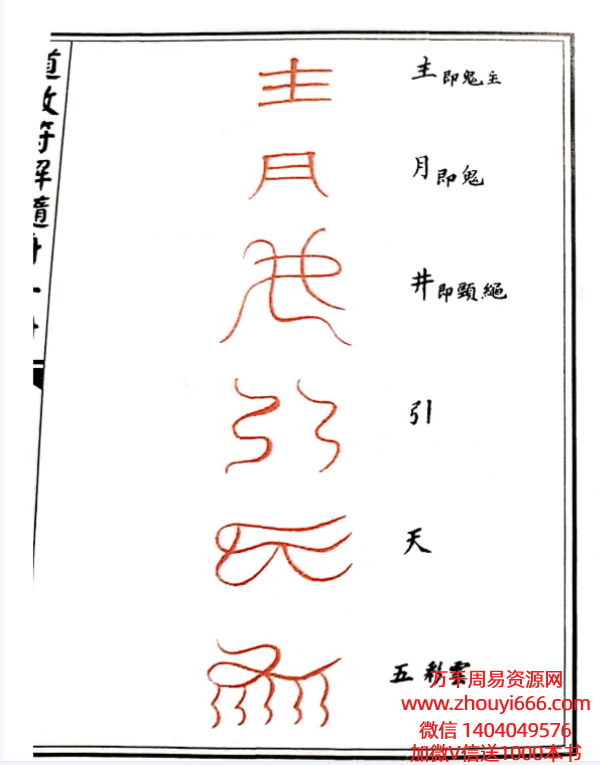 主 即鬼主
月 即鬼
井 即顯繩
引
天
五彩雲
道教符解隨身
万千周易资源网
www.zhouyi666.com
微信 1404049576
加微V信送1000本书